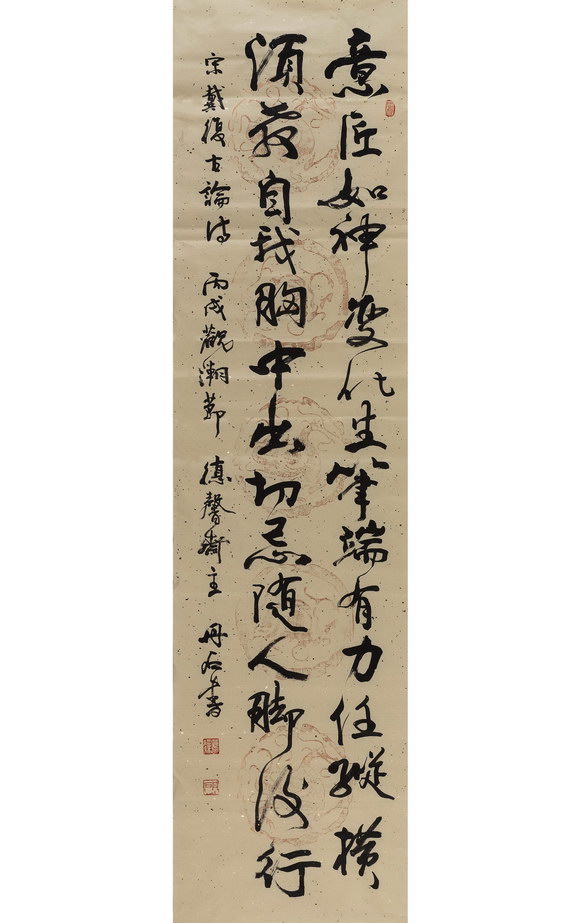 意匠如神變化生筆端有力任縱橫
須教自我胸中出切忌隨人脚後行
宋戴復古論詩 丙戌觀潮節 德馨齋主 丹石書